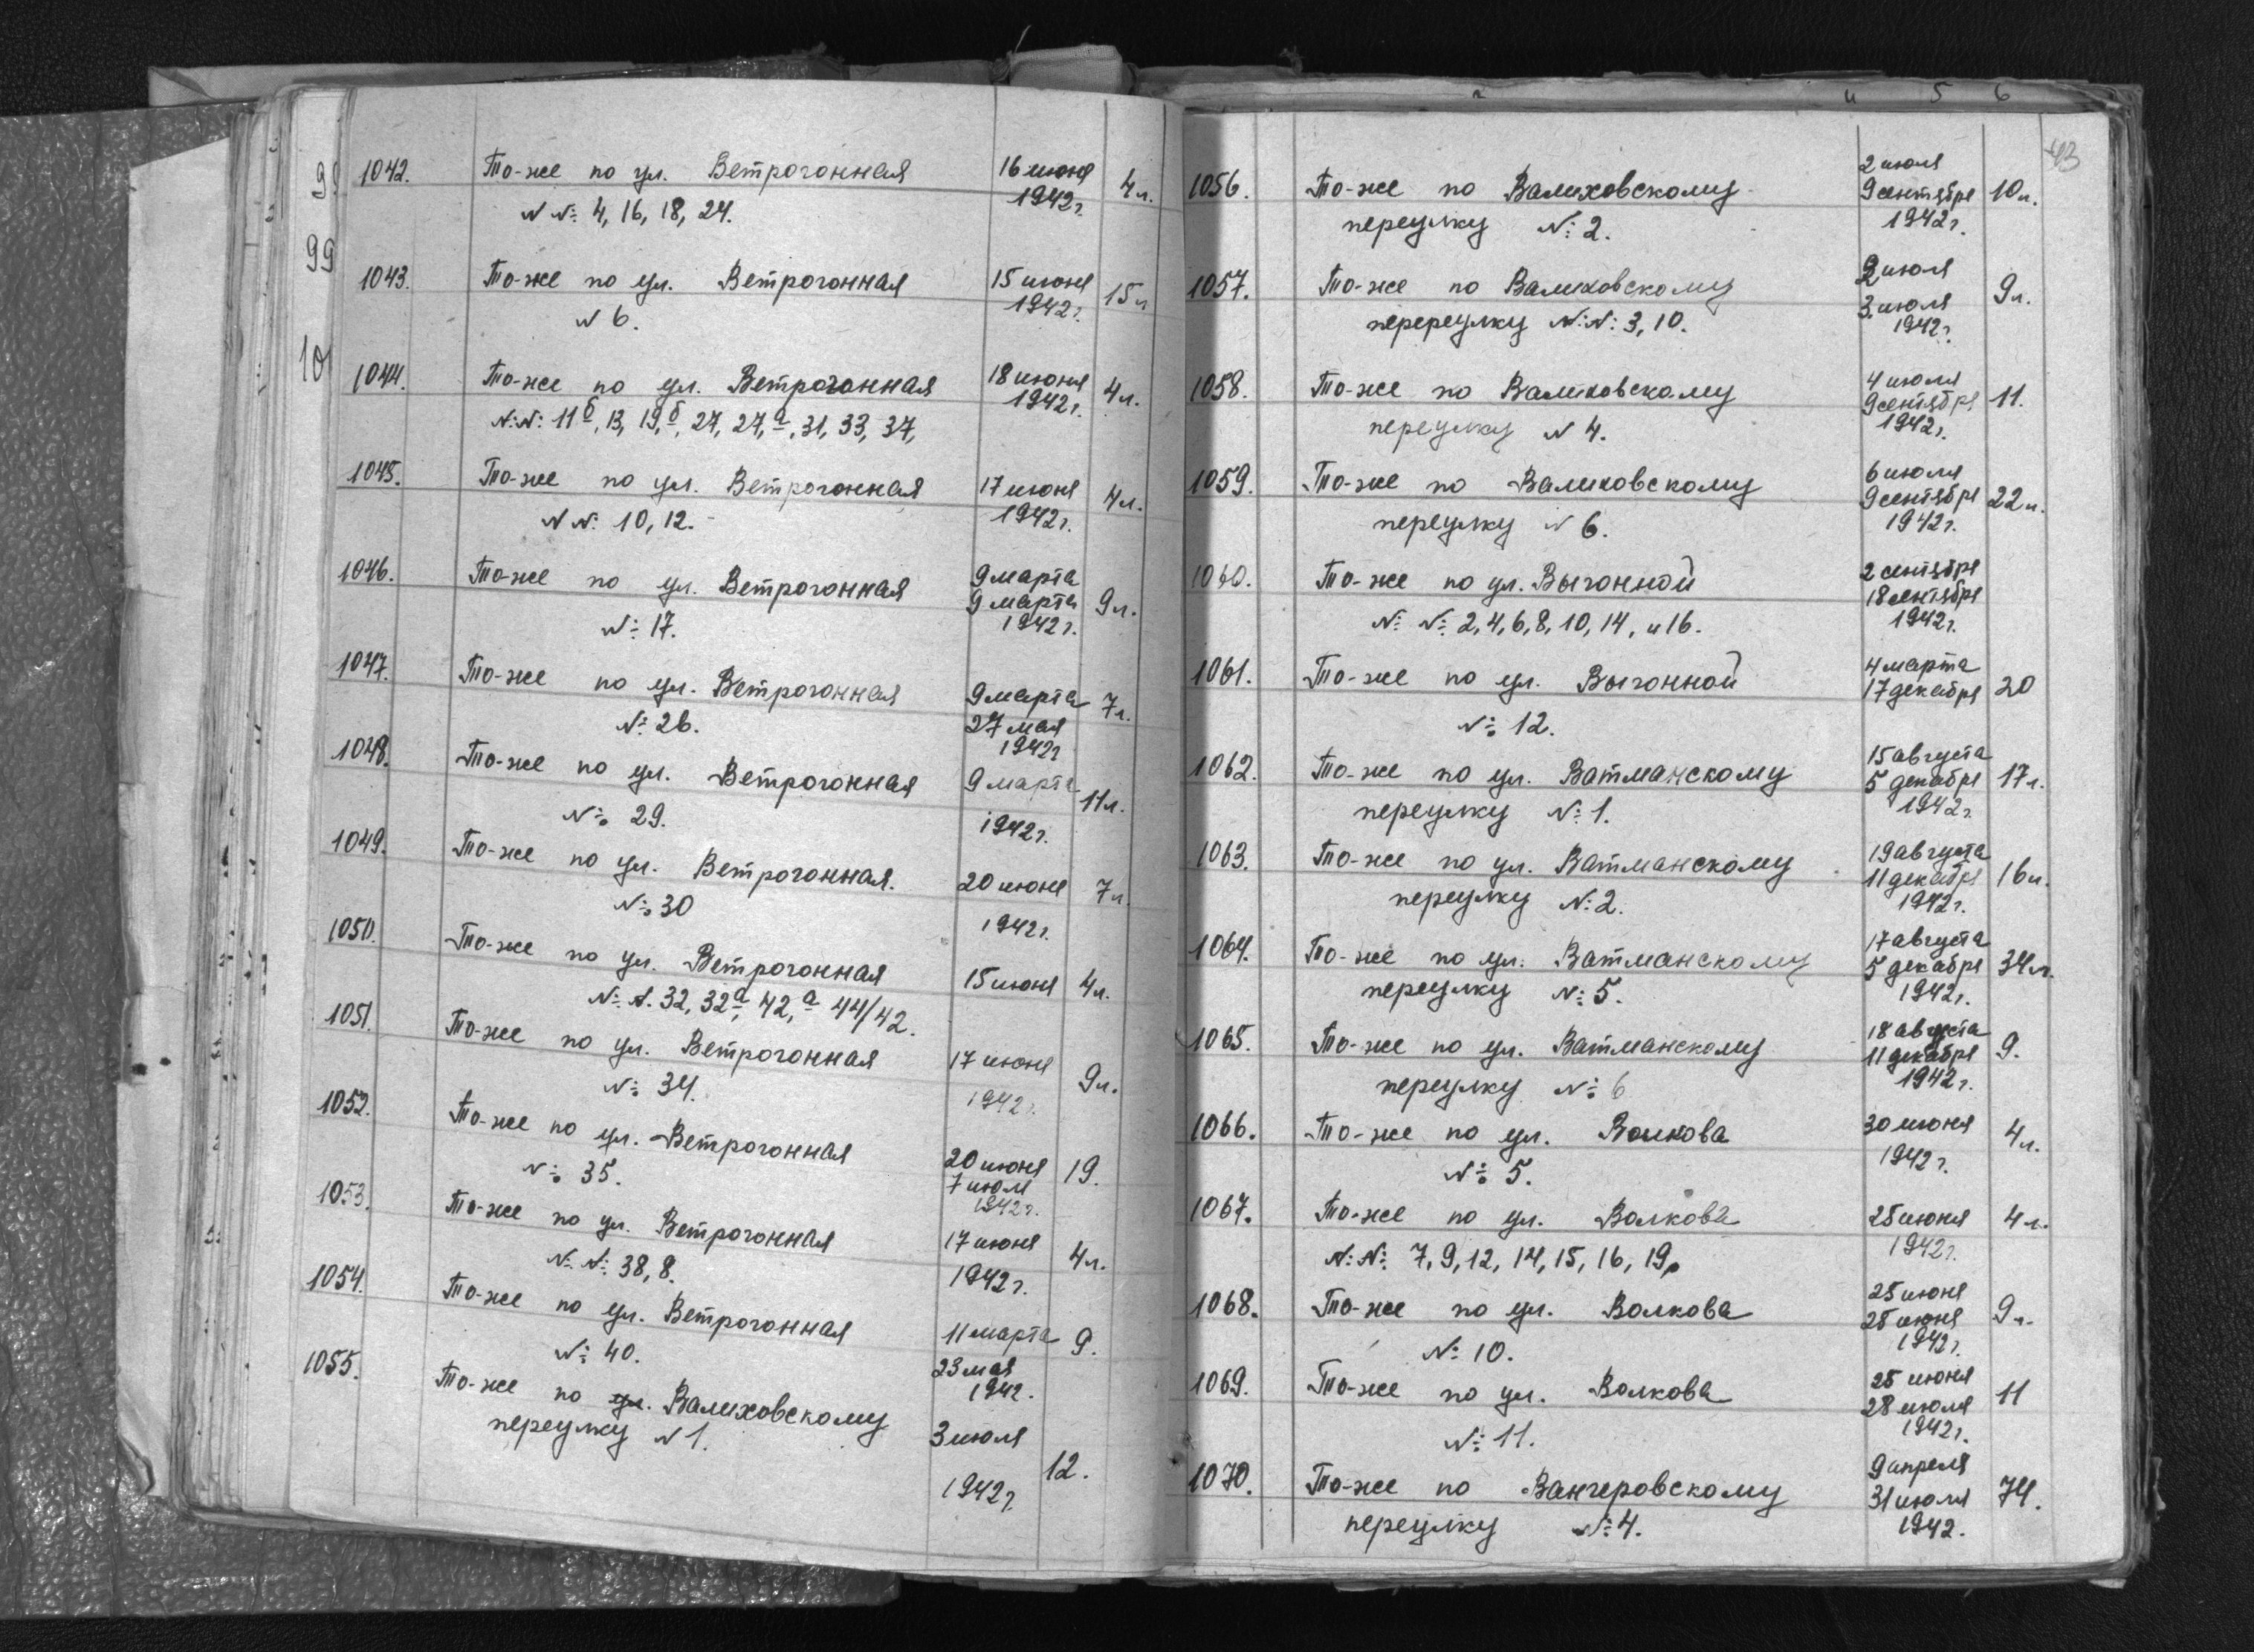 99
99
10
1042. То-же по ул. Ветрогонная 16 июня 4 л.
N№ 4, 16, 18, 24. 1942 г.
1043. То-же по ул. Ветрогонная 15 июня 15 л
N 6. 1942 г.
1044. То-же по ул. Ветрогонная 18 июня 4 л.
N:N: 11б, 13, 19,б, 27, 27,а, 31, 33, 37, 1942 г.
1045. То-же по ул. Ветрогонная 17 июня 4 л.
N N: 10, 12. 1942 г.
1046. То-же по ул. Ветрогонная 9 марта
9 марта 9 л.
№ 17. 1942 г.
1047. То-же по ул. Ветрогонная 9 марта 7 л.
№ 26. 27 мая
1942 г
1048. То-же по ул. Ветрогонная 9 марта 11 л.
№ 29. 1942 г.
1049. То-же по ул. Ветрогонная. 20 июня 7 л.
№ 30 1942 г.
1050. То-же по ул. Ветрогонная 15 июня 4 л.
№ N. 32, 32а, 42,а 44/42.
1051. То-же по ул. Ветрогонная 17 июня 9 л.
№ 34. 1942 г.
1052. То-же по ул. Ветрогонная 20 июня 19.
№ 35. 7 июл
1942 г.
1053. То-же по ул. Ветрогонная 17 июня 4 л.
№ N: 38, 8. 1942 г.
1054. То-же по ул. Ветрогонная 11 марта 9.
№ 40. 23 мая
1942.
1055. То-же по ул. Валиховскому 3 июля 12.
переулку N 1. 1942 г.
5 6
43
1056. То-же по Валиховскому 2 июля
9 сентября 10 л.
переулку № 2. 1942 г.
1057. То-же по Валиховскому 2 июля 9 л.
перереулку N:N: 3, 10. 3 июля
1942 г.
1058. То-же по Валиховскому 4 июля 11.
9 сентября
переулку N 4. 1942 г.
1059. То-же по Валиховскому 6 июля
9 сентября 22 л.
переулку N 6. 1942 г.
1060. То-же по ул. Выгонной 2 сентября
18 сентября
№ № 2, 4, 6, 8, 10, 14, и 16. 1942 г.
1061. То-же по ул. Выгонной 4 марта
17 декабря 20
№ 12.
1062. То-же по ул. Ватманскому 15 августа
5 декабря 17 л.
переулку № 1. 1942 г.
1063. То-же по ул. Ватманскому 19 августа
11 декабря 16 л.
переулку № 2. 1942 г.
1064. То-же по ул. Ватманскому 17 августа
5 декабря 34 л.
переулку № 5. 1942 г.
1065. То-же по ул. Ватманскому 18 августа
11 декабря 9.
переулку № 6 1942 г.
1066. То-же по ул. Волкова 30 июня 4 л.
№ 5. 1942 г.
1067. То-же по ул. Волкова 25 июня 4 л.
N:№ 7, 9, 12, 14, 15, 16, 19, 1942 г.
1068. То-же по ул. Волкова 25 июня
28 июня 9 л.
№ 10. 1942 г.
1069. То-же по ул. Волкова 25 июня 11
28 июля
№ 11. 1942 г.
1070. То-же по Вангеровскому 9 апреля
31 июля 74.
переулку № 4. 1942.